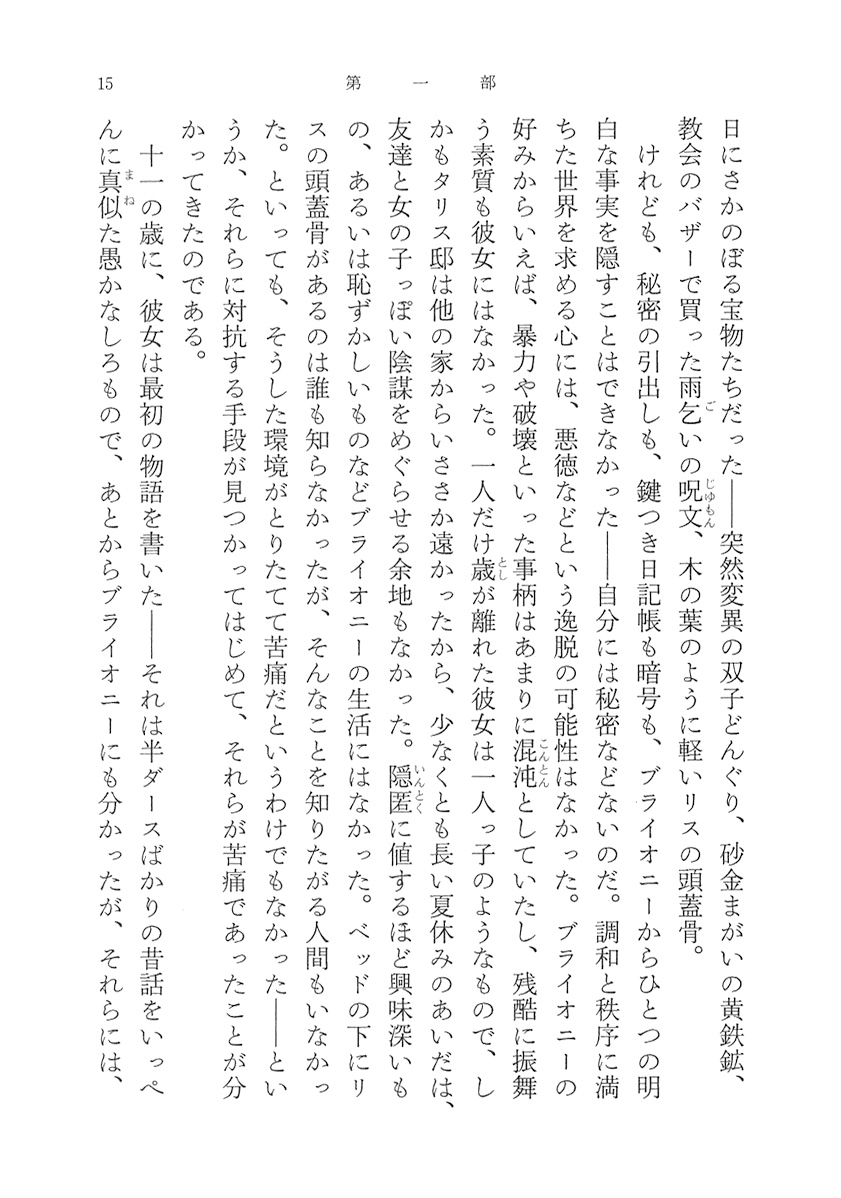 15
第一部
日にさかのぼる宝物たちだった――突然変異の双子どんぐり、砂金まがいの黄鉄鉱、
教会のバザーで買った雨乞いの呪文、木の葉のように軽いリスの頭蓋骨。
けれども、秘密の引出しも、鍵つき日記帳も暗号も、ブライオニーからひとつの明
白な事実を隠すことはできなかった――自分には秘密などないのだ。調和と秩序に満
ちた世界を求める心には、悪徳などという逸脱の可能性はなかった。ブライオニーの
好みからいえば、暴力や破壊といった事柄はあまりに混沌としていたし、残酷に振舞
う素質も彼女にはなかった。一人だけ歳が離れた彼女は一人っ子のようなもので、し
かもタリス邸は他の家からいささか遠かったから、少なくとも長い夏休みのあいだは、
友達と女の子っぽい陰謀をめぐらせる余地もなかった。隠匿に値するほど興味深いも
の、あるいは恥ずかしいものなどブライオニーの生活にはなかった。ベッドの下にリ
スの頭蓋骨があるのは誰も知らなかったが、そんなことを知りたがる人間もいなかっ
た。といっても、そうした環境がとりたてて苦痛だというわけでもなかった――とい
うか、それらに対抗する手段が見つかってはじめて、それらが苦痛であったことが分
かってきたのである。
十一の歳に、彼女は最初の物語を書いた――それは半ダースばかりの昔話をいっぺ
んに真似た愚かなしろもので、あとからブライオニーにも分かったが、それらには、
ご
じゅもん
こんとん
とし
いんとく
まね